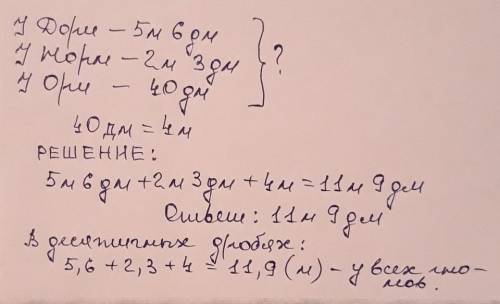 У Дори – 5м 6дм
У Нори – 2м 3дм
У Ори – 40дм
} ?
40дм = 4м
РЕШЕНИЕ:
5м 6дм + 2м 3дм + 4м = 11м 9дм
Ответ: 11м 9дм
В десятичных дробях:
5,6 + 2,3 + 4 = 11,9 (м) – у всех гно-
мов.